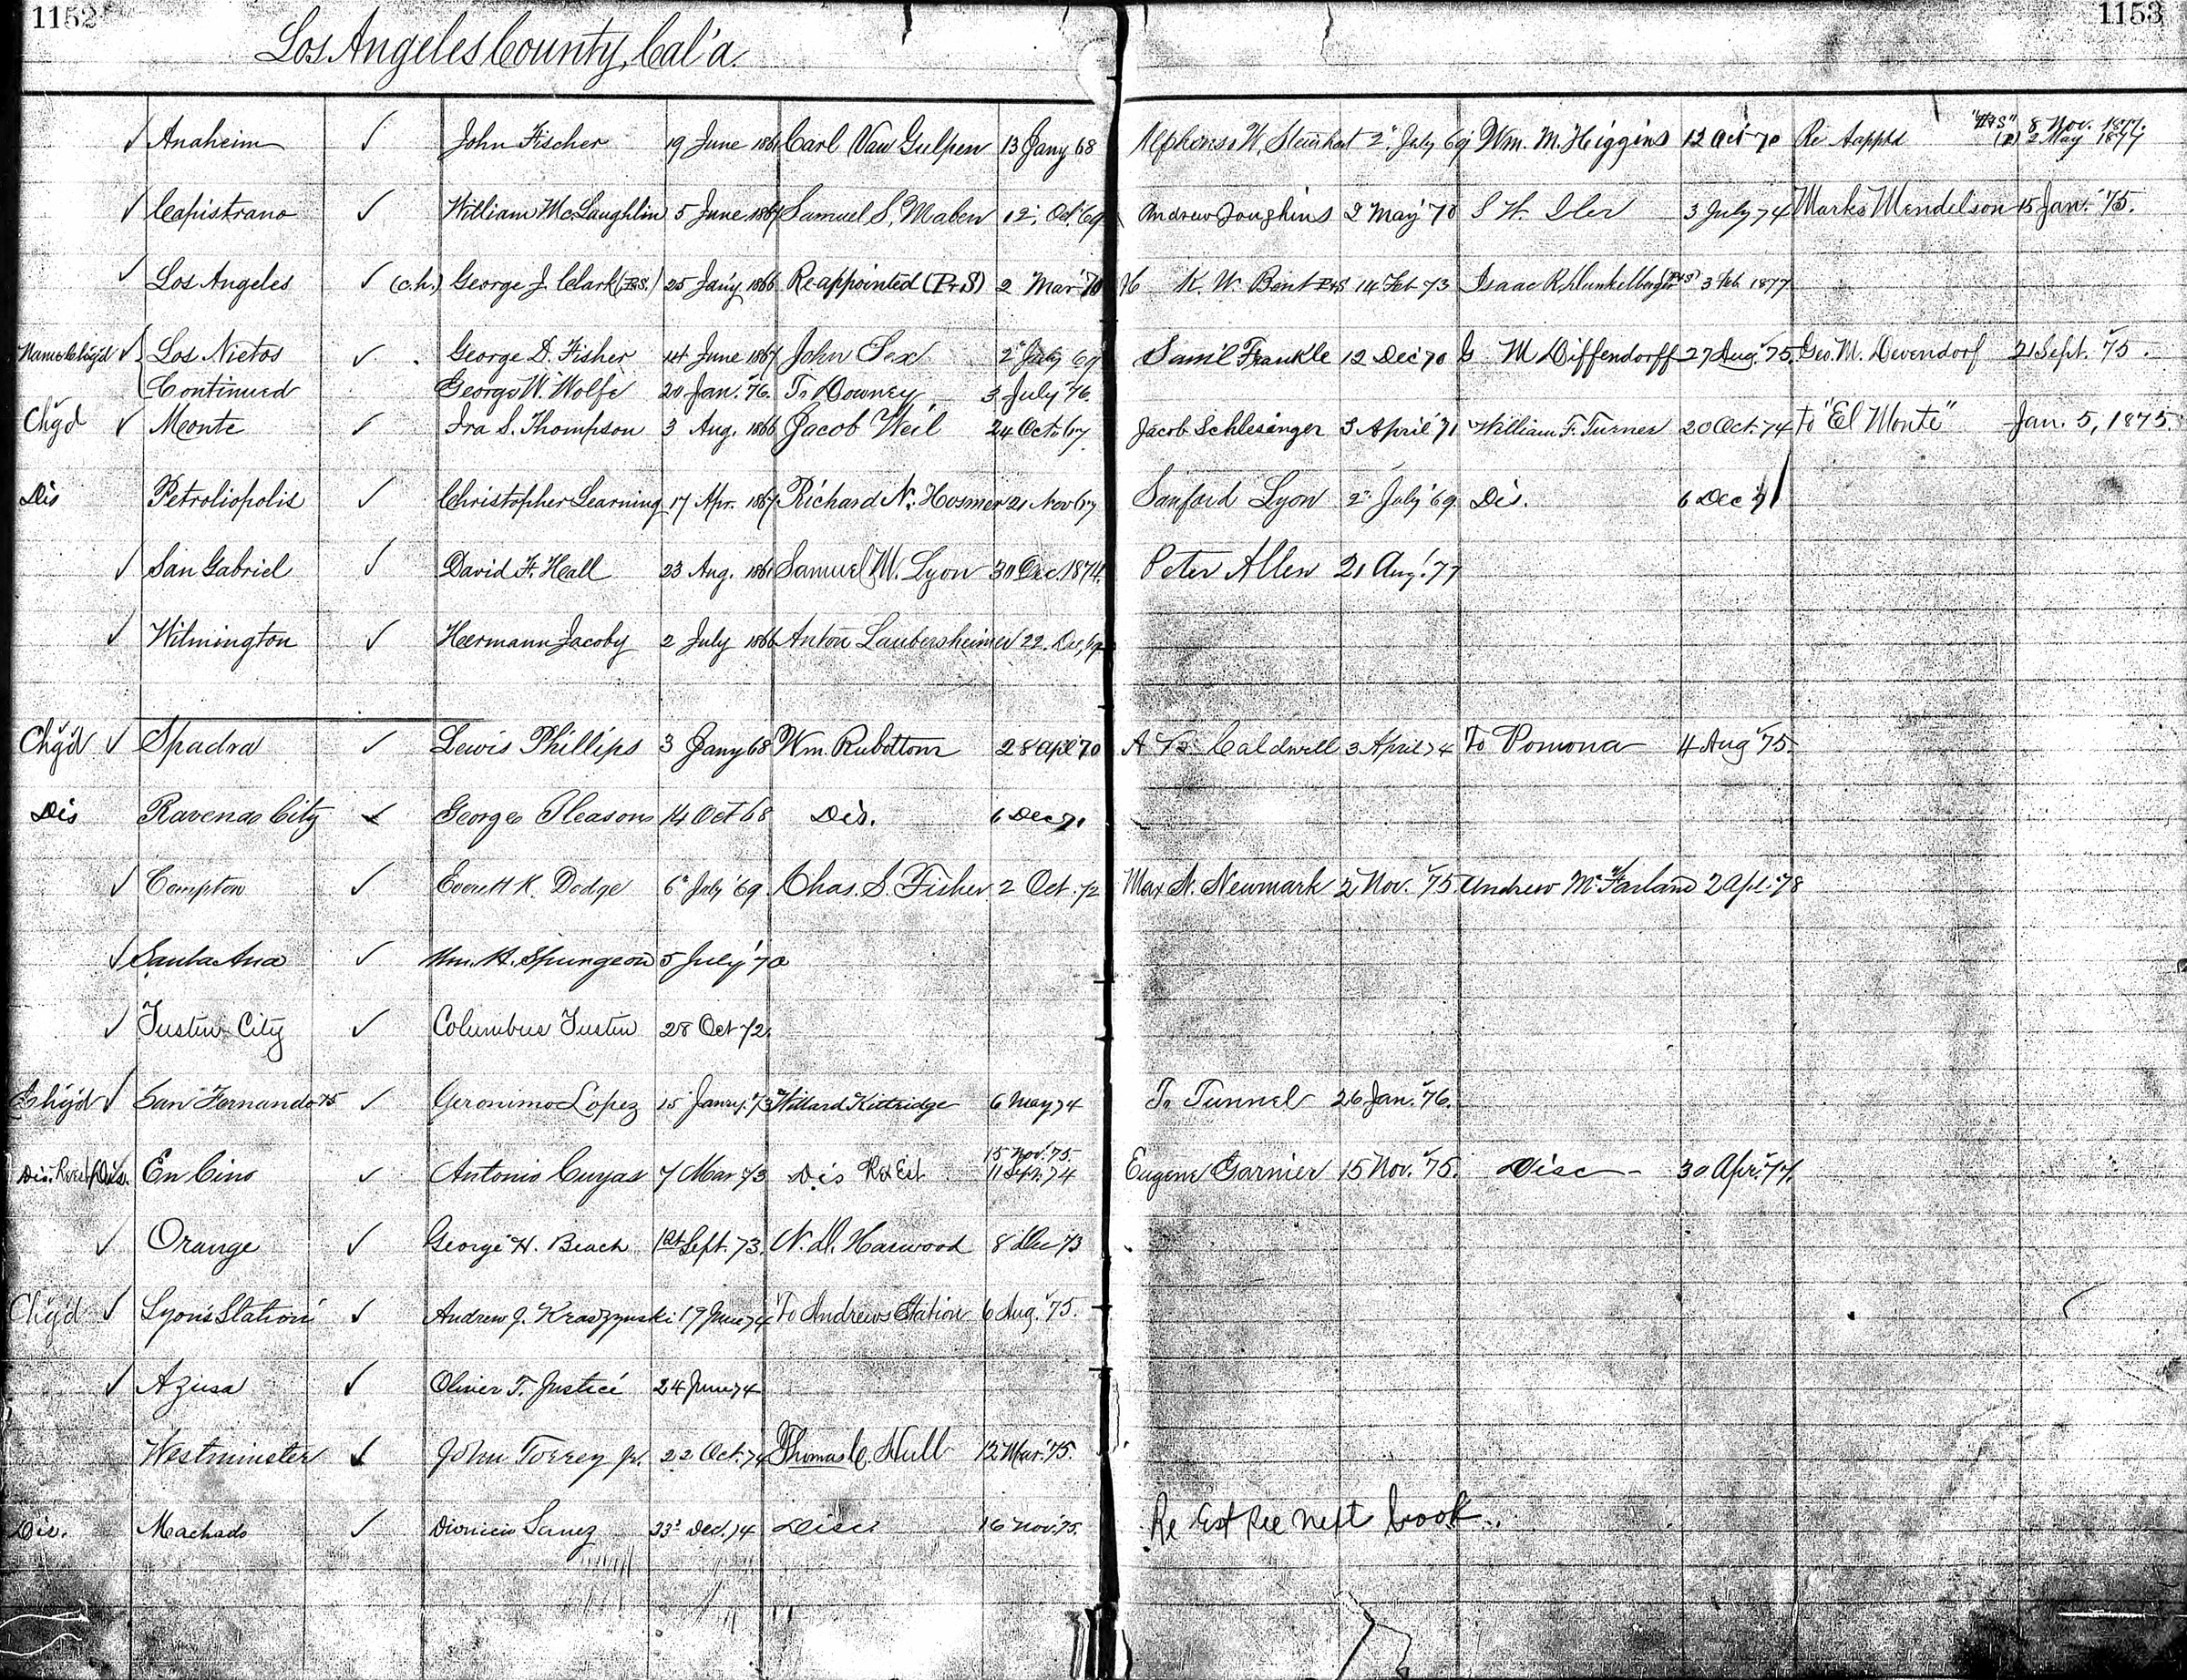 1152
1153
Los Angeles County, Cal'a.
Anaheim John Fischer 19 June 1861 Carl Van Gulpen 13 Jany 68 Alphonso W. Steinhart 2" July 69 Wm. M. Higgins 12 Oct 70 Re Aapptd "P&S" 8 Nov. 1877.
(P) 2 May 1877
Capistrano William McLaughlin 5 June 1867 Samuel S. Maben 12, Oct. 69 Andrew Joughins 2 May '70 S W. Iler 3 July 74 Marks Mendelson 15 Jan. '75.
Los Angeles (c.h.) George J. Clark (P.S.) 25 Jan'y 1866 Re-appointed (P&S) 2 Mar '70 H K. W. Bent P&S 14 Feb 73 Isaac R. Dunkelberger (P&S) 3 Feb 1877
Name Chgd Los Nietos George D. Fisher 14 June 1867 John Sex 2" July 69 Sam'l Frankle 12 Dec 70 G M Diffendorff 27 Aug. '75. Geo. M. Devendorf 21 Sept. '75.
Continued George W. Wolfe 20 Jan. '76. To Downey 3 July '76.
Chg'd Monte Ira S. Thompson 3 Aug. 1866 Jacob Weil 24 Oct. 67 Jacob Schlesinger 3 April '71 William F. Turner 20 Oct. 74 to "El Monte" Jan. 5, 1875.
Dis Petroliopolis Christopher Leaming 17 Apr. 1867 Richard N. Hosmer 21 Nov 67 Sanford Lyon 2" July '69 Dis. 6 Dec 71
San Gabriel David F. Hall 23 Aug. 1861 Samuel M. Lyon 30 Dec. 1874 Peter Allen 21 Aug. '77
Wilmington Hermann Jacoby 2 July 1866 Anton Laubersheimer 22. Dec, 69
Chg'd Spadra Lewis Phillips 3 Jany 68 Wm. Rubottom 28 Apl '70 A B. Caldwell 3 April 74 To Pomona 4 Aug '75.
Dis Ravena City George Gleason 14 Oct 68 Dis. 6 Dec 71
Compton Everett K. Dodge 6" July '69 Chas. S. Fisher 2 Oct. 72 Max N. Newmark 2 Nov. '75 Andrew McFarland 2 Apl. '78
Santa Ana Wm. H. Spurgeon 5 July '70
Tustin City Columbus Tustin 28 Oct 72.
Chg'd San Fernando 75 Geronimo Lopez 15 Jany. '73 Willard Kittridge 6 May 74 To Tunnel 26 Jan. '76.
Dis. Re est Dis. En Cino Antonio Cuyas 7 Mar 73 Dis Re Est 15 Nov. '75.
11 Sept. 74 Eugene Garnier 15 Nov. '75. Disc 30 Apr. '77.
Orange George H. Beach 1st Sept. 73. N. D. Harwood 8 Dec 73
Chg'd Lyon's Station Andrew J. Kraszynski 17 June 74 To Andrews Station 6 Aug. '75.
Azusa Oliver T. Justice 24 June 74
Westminster John Torrey Jr. 22 Oct. 74 Thomas C. Hull 12 Mar. '75.
Dis. Machado Dionicio Sanez 23" Dec. 74 Disc. 16 Nov. '75. Re Est See next book.